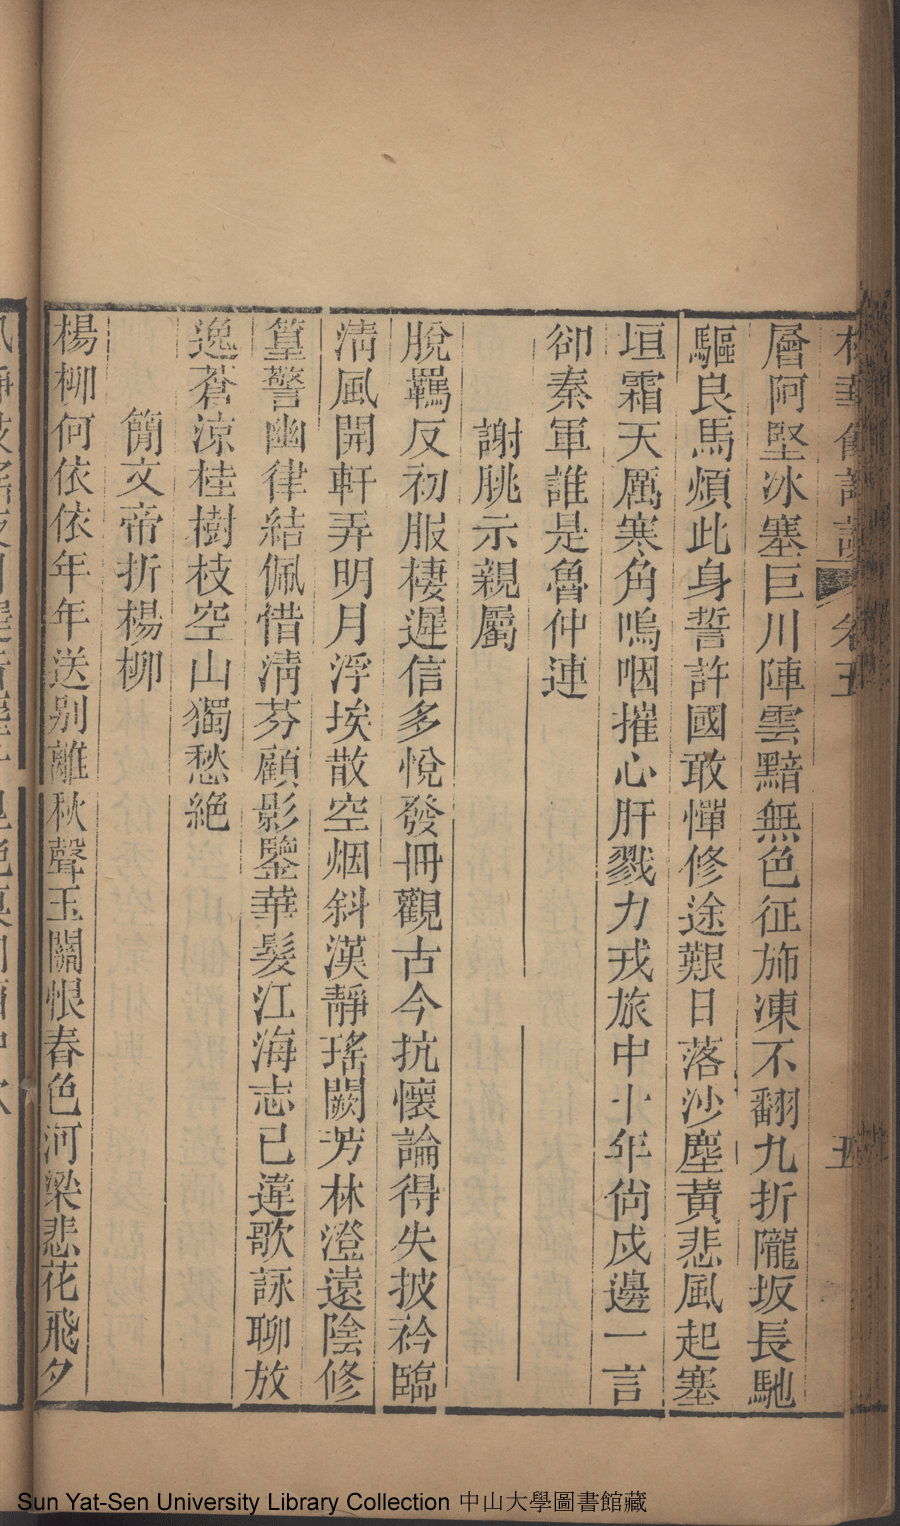 卷五
五
層阿堅冰塞巨川陣雲黯無色征斾凍不翻九折隴坂長馳
驅良馬煩此身誓許國敢憚修途艱日落沙塵黃悲風起塞
垣霜天厲寒角嗚咽摧心肝戮力戎旅中十年尙戍邊一言
卻秦軍誰是魯仲連
謝朓示親屬
脫羈反初服棲遲信多悅發冊觀古今抗懷論得失披衿臨
淸風開軒弄明月浮埃散空烟斜漢靜瑤闕芳林澄遠陰修
篁警幽律結佩惜淸芬顧影鑒華髮江海志已違歌詠聊放
逸蒼涼桂樹枝空山獨愁絕
簡文帝折楊柳
楊柳何依依年年送别離秋聲玉關恨春色河梁悲花飛夕
Sun Yat-Sen University Library Collection 中山大學圖書館藏